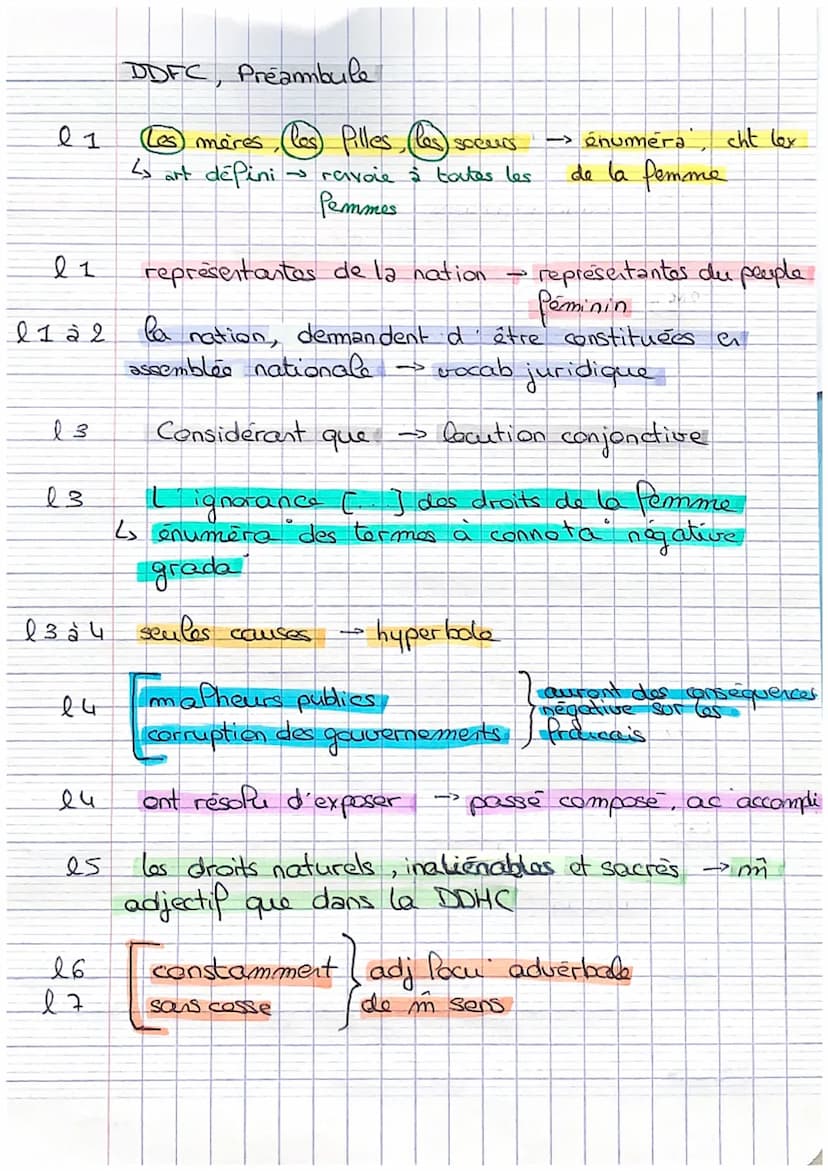 DDFC, Préambule
l 1 Les mères, les filles, les soeurs → énuméra°, cht lex
↳ art défini → ravoie à toutes les de la femme
femmes
l 1 représentantes de la nation → représentantes du peuple
féminin
l 1 à 2 la nation, demandent d'être constituées en
assemblée nationale → vocab juridique
l 3 Considérant que → locution conjonctive
l 3 L'ignorance [...] des droits de la femme
↳ énuméra° des termes à connota° négative
grada°
l 3 à 4 seules causes → hyperbole
l 4 [ malheurs publics } auront des conséquences
négative sur les
corruption des gouvernements français
l 4 ont résolu d'exposer → passé composé, ac° accompli
l 5 les droits naturels, inaliénables et sacrés → m̂
adjectif que dans la DDHC
l 6 [ constamment } adj locu° adverbale
l 7 sans cesse de m̂ sens